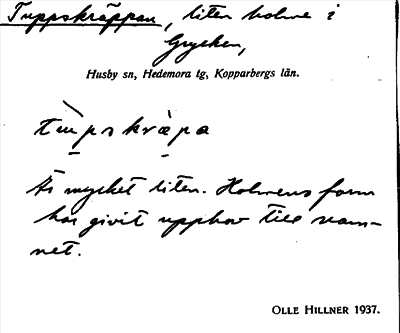 Tuppskräppan, liten holme i
Grycken,
Husby sn, Hedemora tg, Kopparbergs län.
tùpskràpa
Är mycket liten. Holmens form
har givit upphov till nam-
net.
OLLE HILLNER 1937.